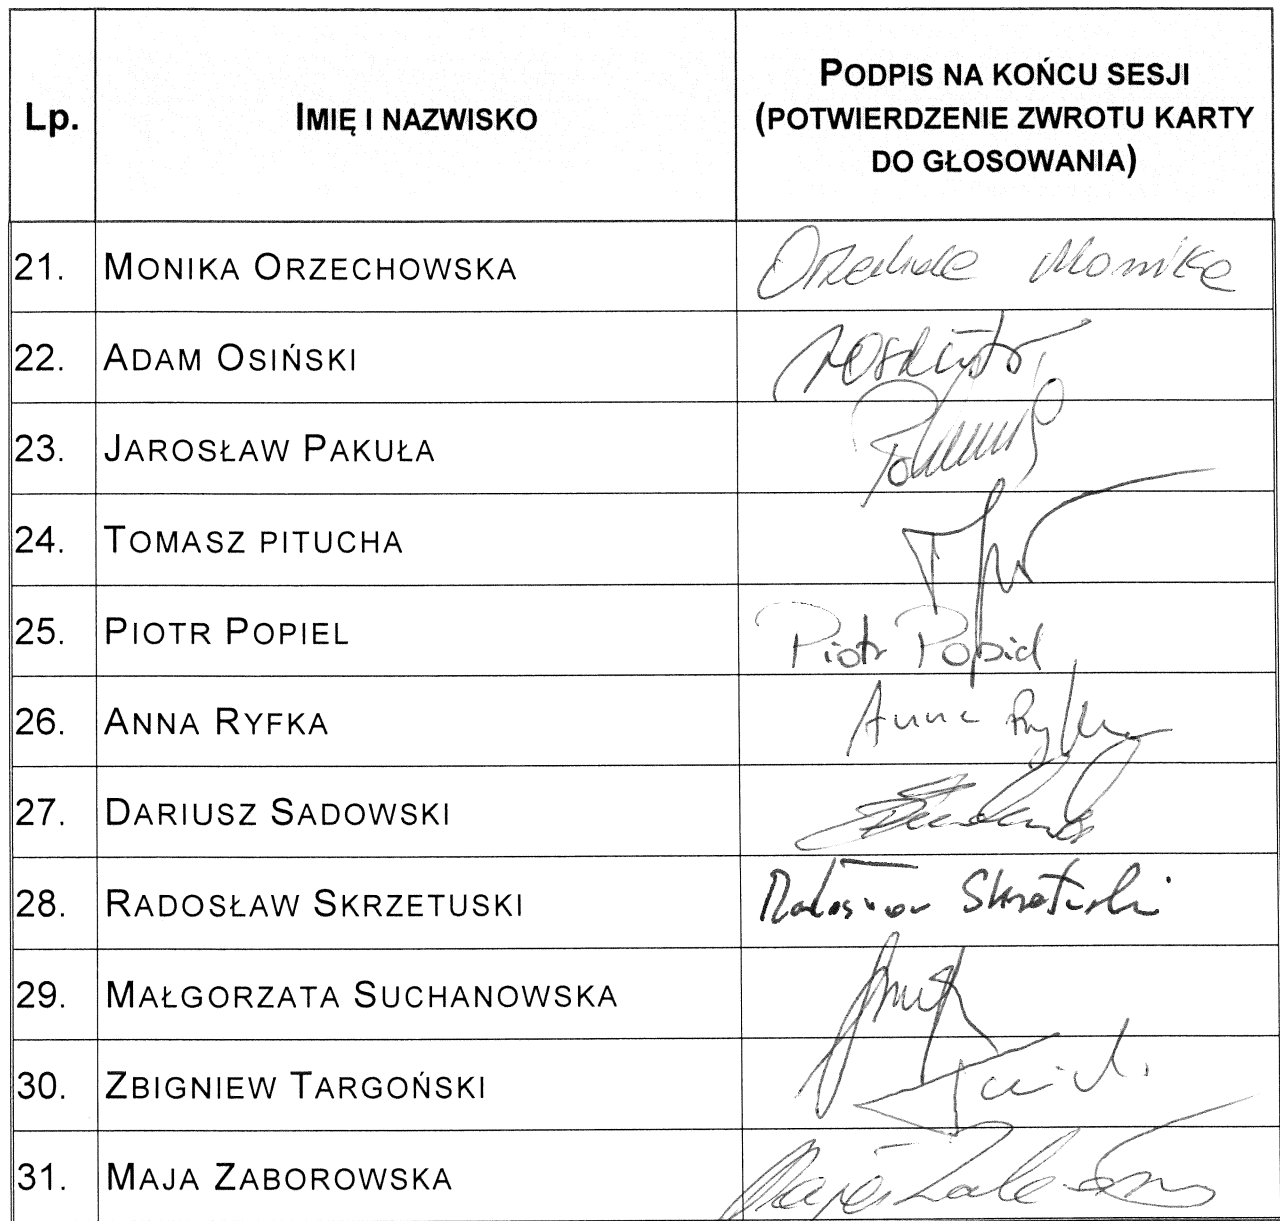 Lp.
IMIĘ I NAZWISKO
PODPIS NA KOŃCU SESJI
(POTWIERDZENIE ZWROTU KARTY
DO GŁOSOWANIA)
21. MONIKA ORZECHOWSKA Monika
22. ADAM OSIŃSKI
23. JAROSŁAW PAKUŁA
24. TOMASZ PITUCHA
25. PIOTR POPIEL Piotr Popiel
26. ANNA RYFKA Anna Ryfka
27. DARIUSZ SADOWSKI
28. RADOSŁAW SKRZETUSKI Radosław Skrzetuski
29. MAŁGORZATA SUCHANOWSKA
30. ZBIGNIEW TARGOŃSKI
31. MAJA ZABOROWSKA Maja